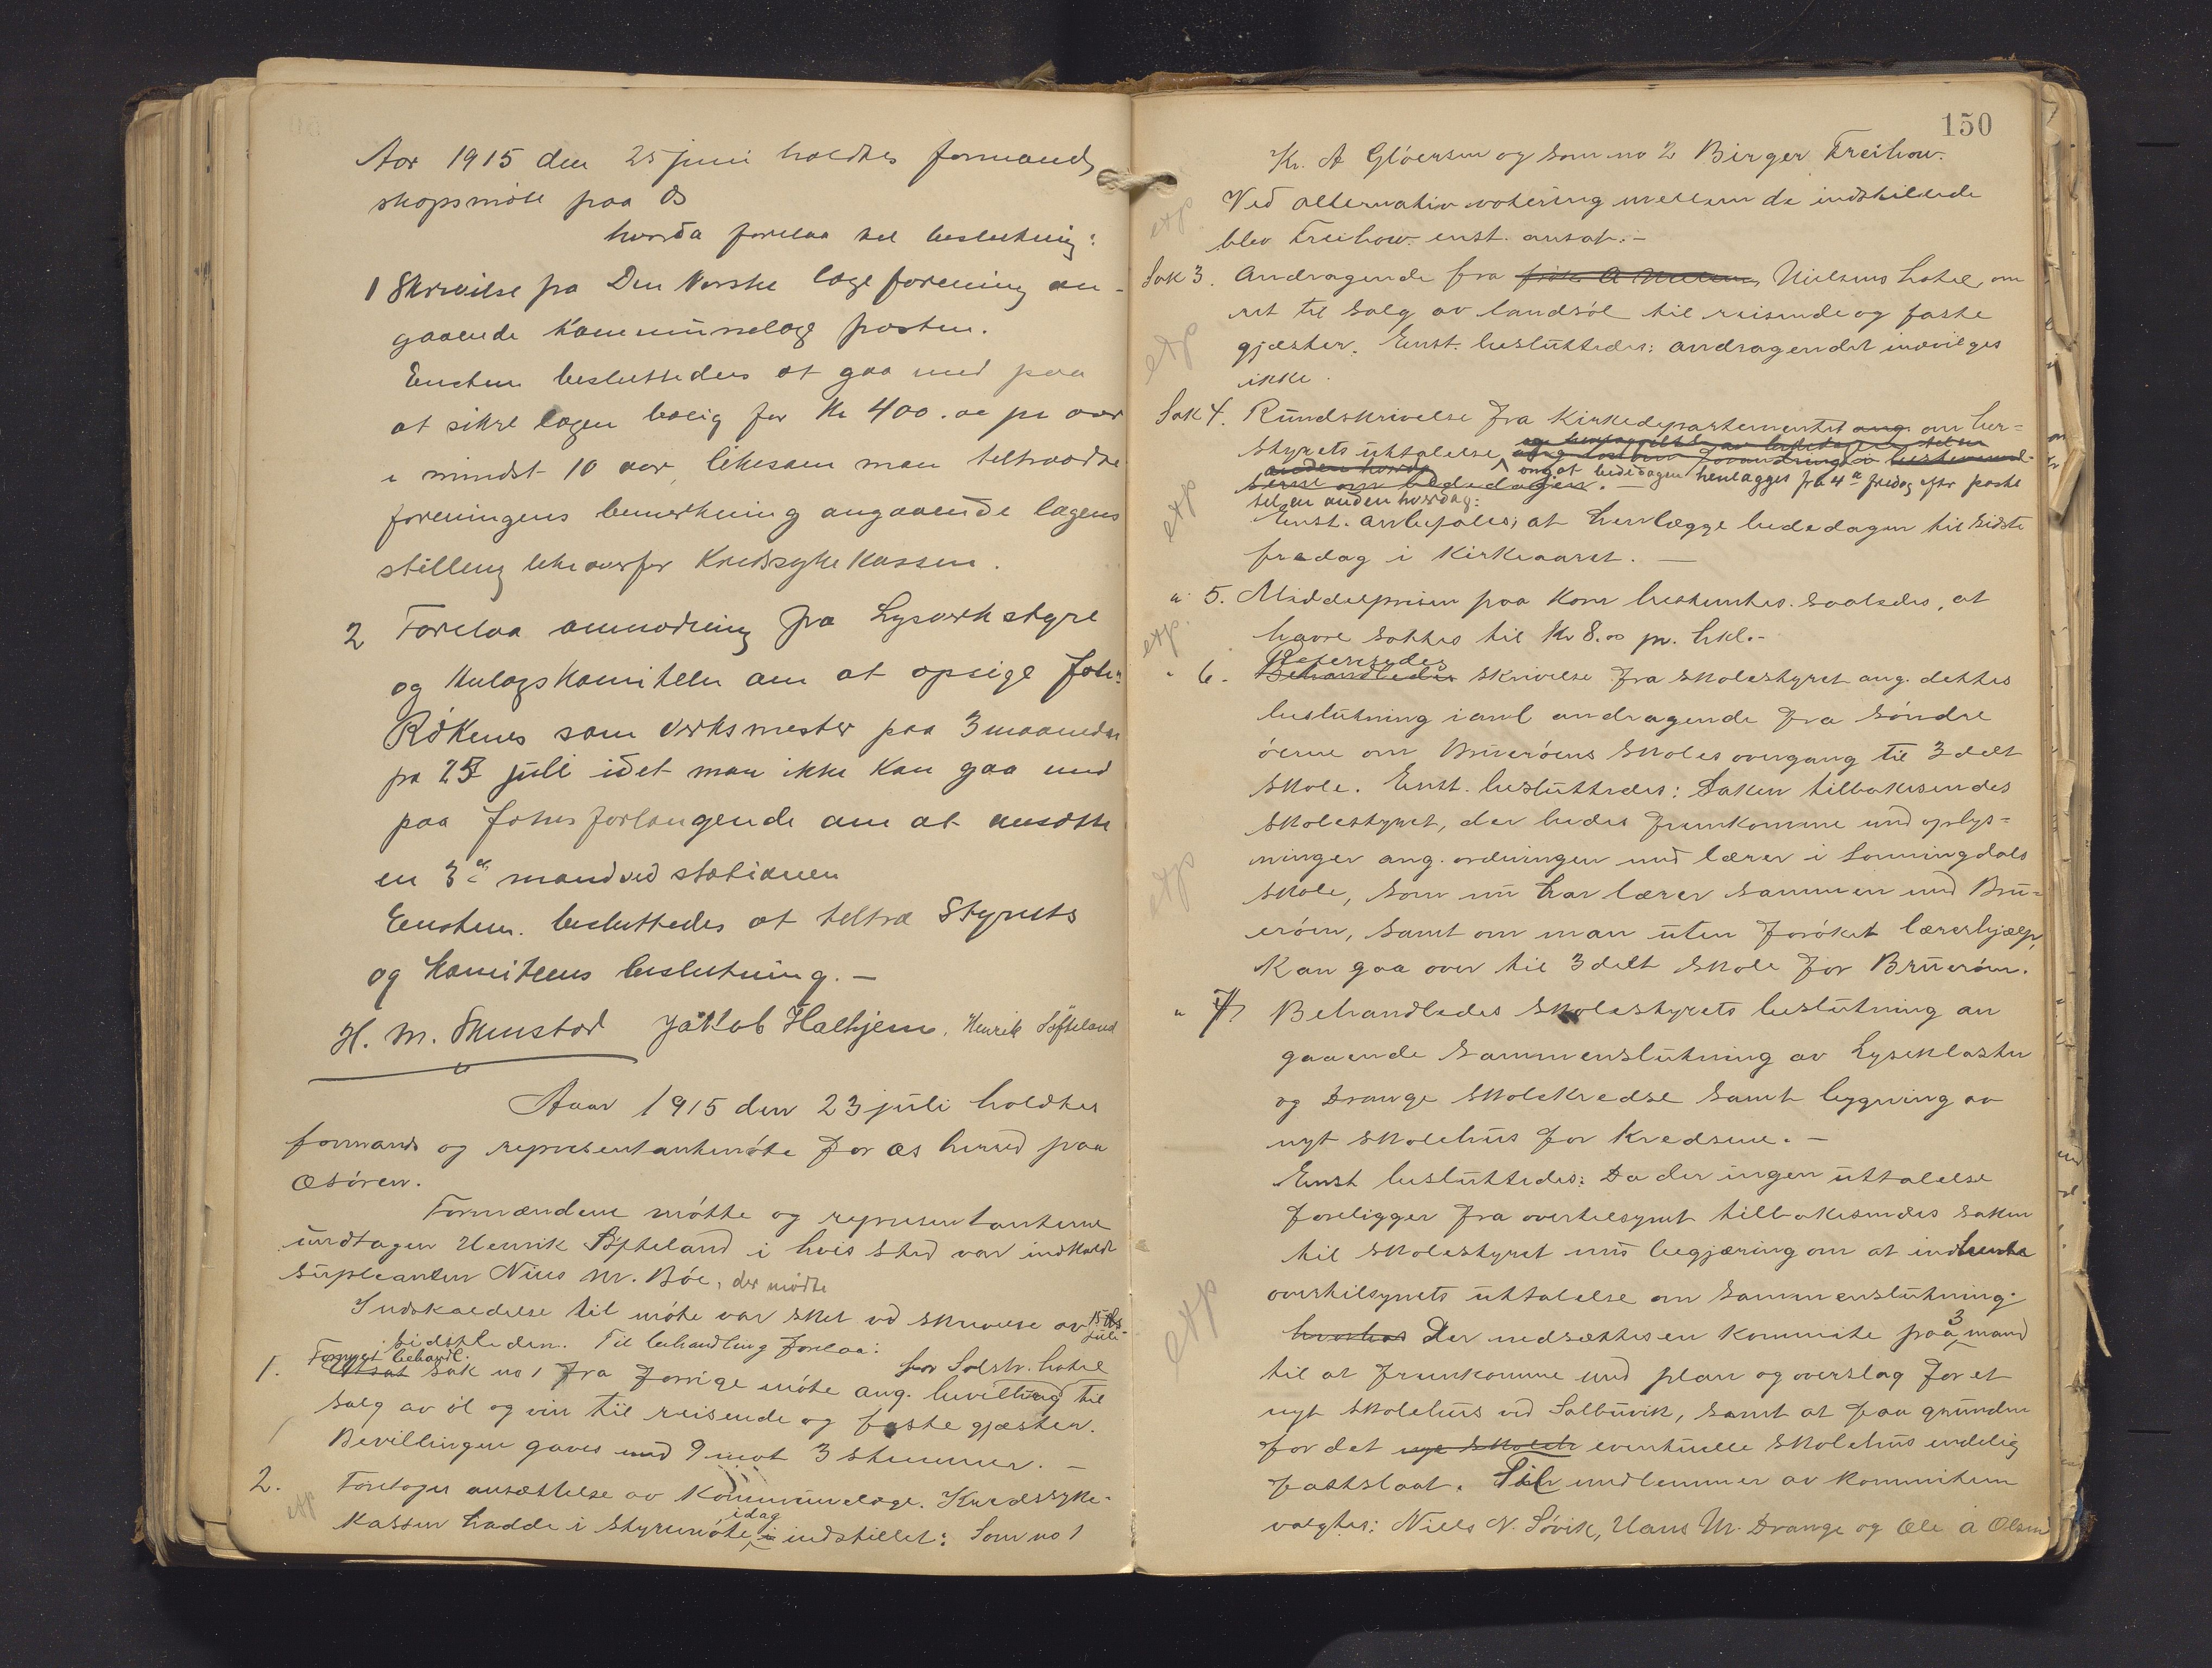 Aar 1915 den 25 juni holdtes formand-
skapsmöte paa Os
hvorda forelaa til beslutning:
1 Skrivelse fra Den Norske lægeforening an-
gaaende Kommunelæge posten.
Enstem besluttedes at gaa med paa
at sikre lægen bolig for Kr 400.00 pr aar
i mindst 10 aar, likesom man tiltraadte
foreningens bemerkning angaaende lægens
stilling likeoverfor Kredssykekassen.
2 Forelaa anmodning fra Lysverkstyre
og Anlægskomiteen om at opsige Johs
Rökenes som verksmester paa 3 maaneder
fra 25 juli idet man ikke kan gaa med
paa Johns forlangende om at ansætte
en 3die mand ved stationen
Enstem. besluttedes at tiltræ Styrets
og Komiteens beslutning. —
H. M. Skinstad Jakob Halhjem. Henrik Söfteland
Aaar 1915 den 23 juli holdtes
formands og representantmöte for Os herred paa
Osören.
Formændene mötte og representanterne
undtagen Henrik Söfteland i hvis sted var indkaldt
supleanten Nils M. Böe, der mödte
Indskaldelse til möte var sket ved skrivelse av 15 ds.
juli
bidstileden. Til behandling forelaa:
Fornyet behandl. for Solstr. hotel
1. Utsat sak no 1 fra forrige möte ang. bevilling til
salg av öl og vin til reisende og faste gjæster.
Bevillingen gaves med 9 mot 3 stemmer. —
2. Foretoges ansættelse av Kommunelæge. Kredssyke-
idag
etp kassen hadde i styremöte indstillet: Som no 1
150
Kr. A Glöersen og som no 2 Birger Freihow.
etp Ved alternativ votering mellem de indstillede
blev Freihow enst. ansat. —
Sak 3. Andragende fra Nielsens hotel, om
ret til salg av landsöl til reisende og faste
etp gjæster. Enst. besluttedes: andragendet indvilges
ikke.
Sak 4. Rundskrivelse fra Kirkedepartementet ang om her-
styrets uttalelse
om, at bededagen henlægges fra 4de fredag efter paaske
til en anden hverdag:
etp Enst. anbefales, at henlægge bededagen til sidste
fredag i kirkeaaret. —
" 5. Middelprisen paa Korn bestemtes saaledes, at
etp. havre sættes til Kr 8.00 pr. hkl. —
Refereredes
" 6. Behandledes skrivelse fra skolestyret ang. dettes
beslutning ianl andragende fra söndre
öerne om Brueröens skoles overgang til 3 delt
skole. Enst. besluttedes: Saken tilbakesendes
skolestyret, der bedes fremkomme med oplys-
ninger ang. ordningen med lærer i Sonningdals
etp skole, som nu har lærer sammen med Bru-
eröen, samt om man uten forøket lærerhjælp,
Kan gaa over til 3 delt skole for Brueröen.
" 7 Behandledes Skolestyrets beslutning an
gaaende sammenslutning av Lysekloster
og Drange skolekredse samt bygning av
nyt skolehus for kredsene. —
Enst besluttedes: Da der ingen uttalelse
foreligger fra overtilsynet tilbakesendes saken
til skolestyret med begjæring om at indhente
overtilsynets uttalelse om sammenslutning.
etp hvorhos Der nedsættes en Kommite paa 3 mand
til at fremkomme med plan og overslag for et
nyt skolehus ved Salbuvik, samt at faa grunden
for det nye skoleh eventuelle skolehus endelig
fastslaat. Til medlemmer av kommiteen
valgtes: Niels N. Søvik, Hans M. Drange og Ole A Olsen